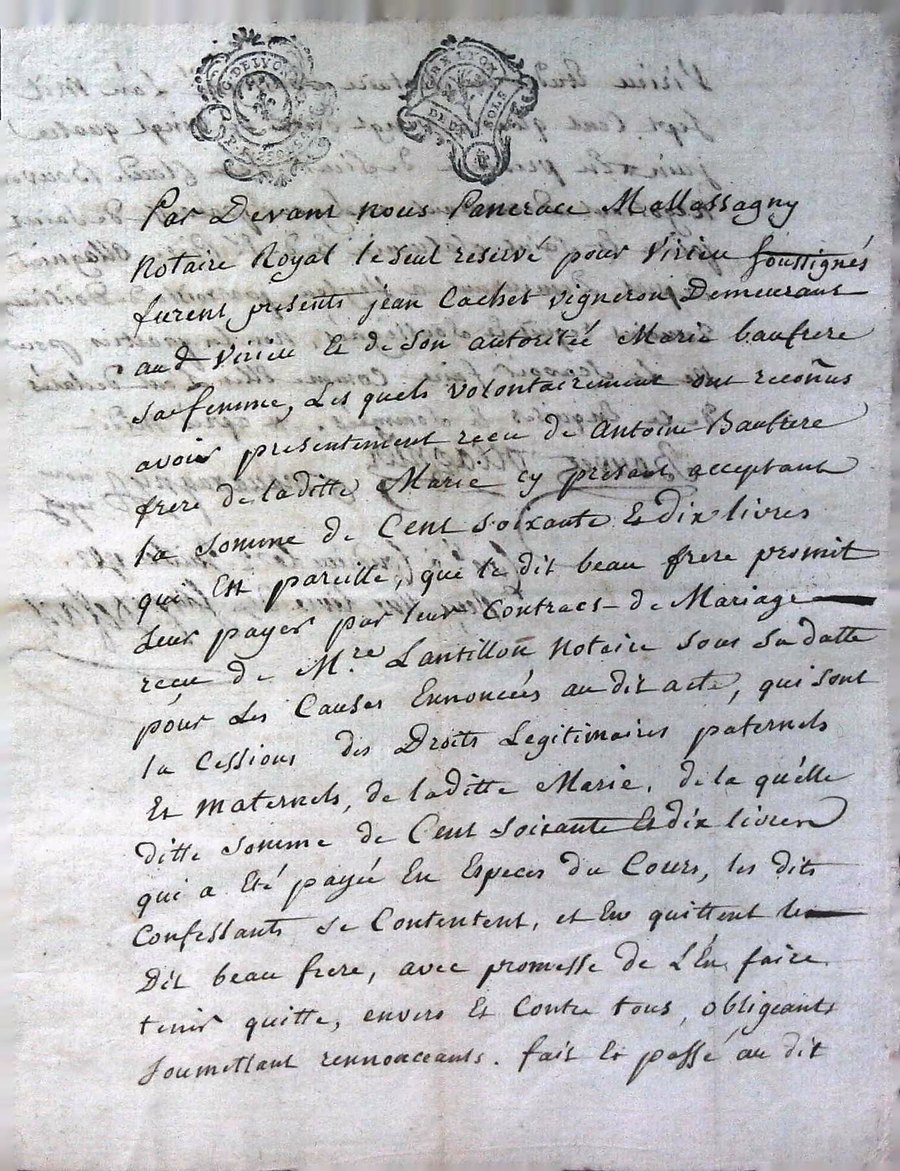 G. DE LYON
GNE LYON
DEUX SOLS
Par Devant nous Pancrace Mallassagny
Notaire Royal le seul reservé pour Virieu soussignés
furent presents jean Cachet vigneron Demeurant
aud Virieu Et de son autorité Marie baufrere
sa femme, Les quels volontairement ont reconus
avoir presentement recu de Antoine Baufrere
frere de laditte Marie cy present acceptant
la somme de Cent soixante Et dix livres
qui Est pareille, que le dit beau frere promit
Leur payer par leur Contract de Mariage
recu de M.re Lantillon Notaire sous sa datte
pour Les Causes Ennoncées au dit acte, qui sont
la Cessions des Droits Legitimaires paternels
Et maternels, de laditte Marie, de la quelle
ditte somme de Cent soixante Et dix livres
qui a Eté payée En Especes du Cours, les dits
Confessants se Contentent, et En quittent le
Dit beau frere, avec promesse de L'En faire
tenir quitte, envers Et Contre tous, obligeants
soumettant rennonceants. fait Et passé au dit